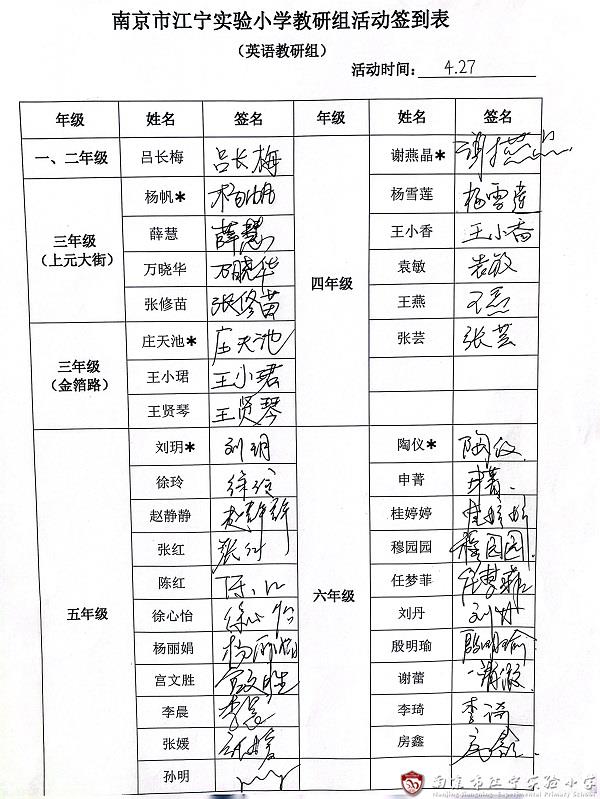 南京市江宁实验小学教研组活动签到表
（英语教研组）
活动时间： 4.27
年级 姓名 签名 年级 姓名 签名
一、二年级 吕长梅 吕长梅 四年级 谢燕晶＊
三年级（上元大街） 杨帆＊ 杨帆 杨雪莲 杨雪莲
薛慧 薛慧 王小香 王小香
万晓华 万晓华 袁敏 袁敏
张修苗 张修苗 王燕 王燕
三年级（金箔路） 庄天池＊ 庄天池 张芸 张芸
王小珺 王小珺
王贤琴 王贤琴
五年级 刘玥＊ 刘玥 六年级 陶仪＊ 陶仪
徐玲 徐玲 申菁 申菁
赵静静 赵静静 桂婷婷 桂婷婷
张红 张红 穆园园 穆园园
陈红 陈红 任梦菲 任梦菲
徐心怡 徐心怡 刘丹 刘丹
杨丽娟 杨丽娟 殷明瑜 殷明瑜
宫文胜 宫文胜 谢蕾
李晨 李晨 李琦 李琦
张媛 张媛 房鑫 房鑫
孙明
南京市江宁实验小学
Nanjing Jiangning Experimental Primary School